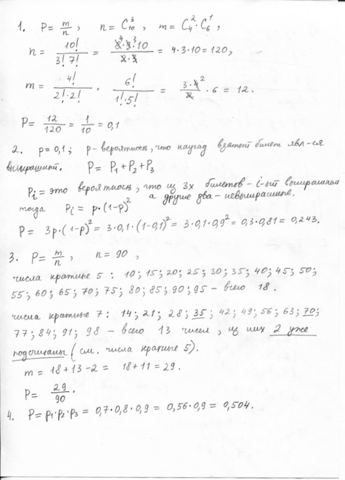 1. P = m/n , n = C₁₀³ , m = C₄² · C₆¹
n = 10!/(3! 7!) = 8·9·10/(2·3) = 4·3·10 = 120,
m = 4!/(2!·2!) · 6!/(1!·5!) = 3·4/2 · 6 = 12.
P = 12/120 = 1/10 = 0,1
2. p = 0,1; p - вероятность, что наугад взятый билет явл-ся
выигрышным. P = P₁ + P₂ + P₃
Pᵢ = это вероятность, что из 3х билетов - i-ый выигрышный
а другие два - невыигрышные.
тогда Pᵢ = p·(1-p)²
P = 3p·(1-p)² = 3·0,1·(1-0,1)² = 3·0,1·0,9² = 0,3·0,81 = 0,243.
3. P = m/n , n = 90,
числа кратные 5 : 10; 15; 20; 25; 30; 35; 40; 45; 50;
55; 60; 65; 70; 75; 80; 85; 90; 95 - всего 18.
числа кратные 7 : 14; 21; 28; 35; 42; 49; 56; 63; 70;
77; 84; 91; 98 - всего 13 чисел, из них 2 уже
подсчитаны (см. числа кратные 5).
m = 18 + 13 - 2 = 18 + 11 = 29.
P = 29/90 .
4. P = p₁·p₂·p₃ = 0,7·0,8·0,9 = 0,56·0,9 = 0,504.